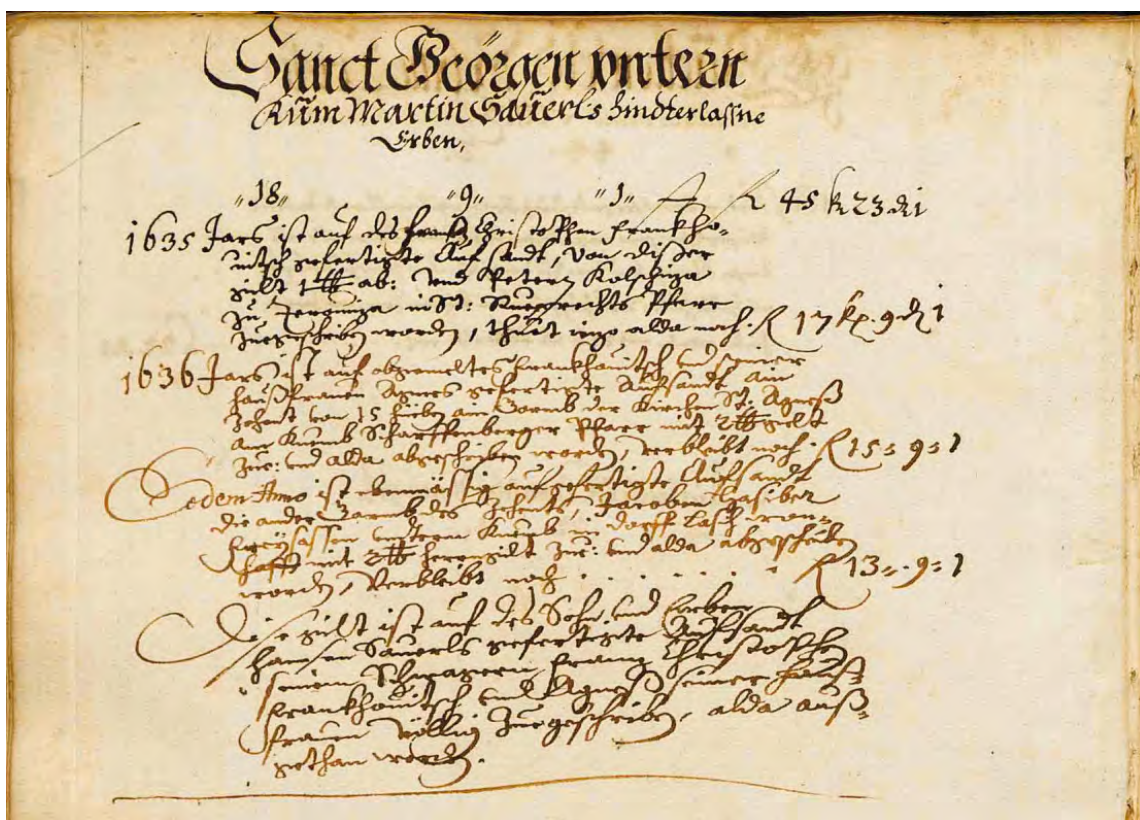 Sanct Geörgen vntern
Kum Martin Sauerls hindterlassne
Erben,
„18„ „9„ „1„ 45 23 1
1635 Jars ist auf des Franz Christophen Frankho-
uitsch gefertigte Aufsandt, von diser
gült 1 ℔ ab: vnd Petern Kolschiza
zu in St: Rueprechts Pfarr
zuegeschriben worden, thuet alda noch. 17 9 1
1636 Jars ist auf obgemeltes Frankhouitsch vnd seiner
haußfrauen Agnes gefertigte Aufsandt ain
Zehent von 15 hueben am der Kirchen St: Agneß
am Kumb Scharffenberger Pfarr mit 2 ℔ gült
zue: vnd alda abgeschriben worden, verbleibt noch. 15 „ 9 „ 1
Eodem Anno ist ebenmässig auf gefertigte Aufsandt
die ander des Zehents, Jacoben
Freysassen vnterm Kumb im dorff won-
hafft mit 2 ℔ herrngült zue: vnd alda abgeschriben
worden, Verbleibt noch . . . . . . . 13 „ 9 „ 1
Dise gült ist auf des Sohn vnd Erben
Hannsen Sauerls gefertigte Aufsandt
seinem Schwagern Franz Christophen
Frankhouitsch vnd Agneß seiner hauß-
frauen völlig zuegeschriben, alda auß-
gethan worden.